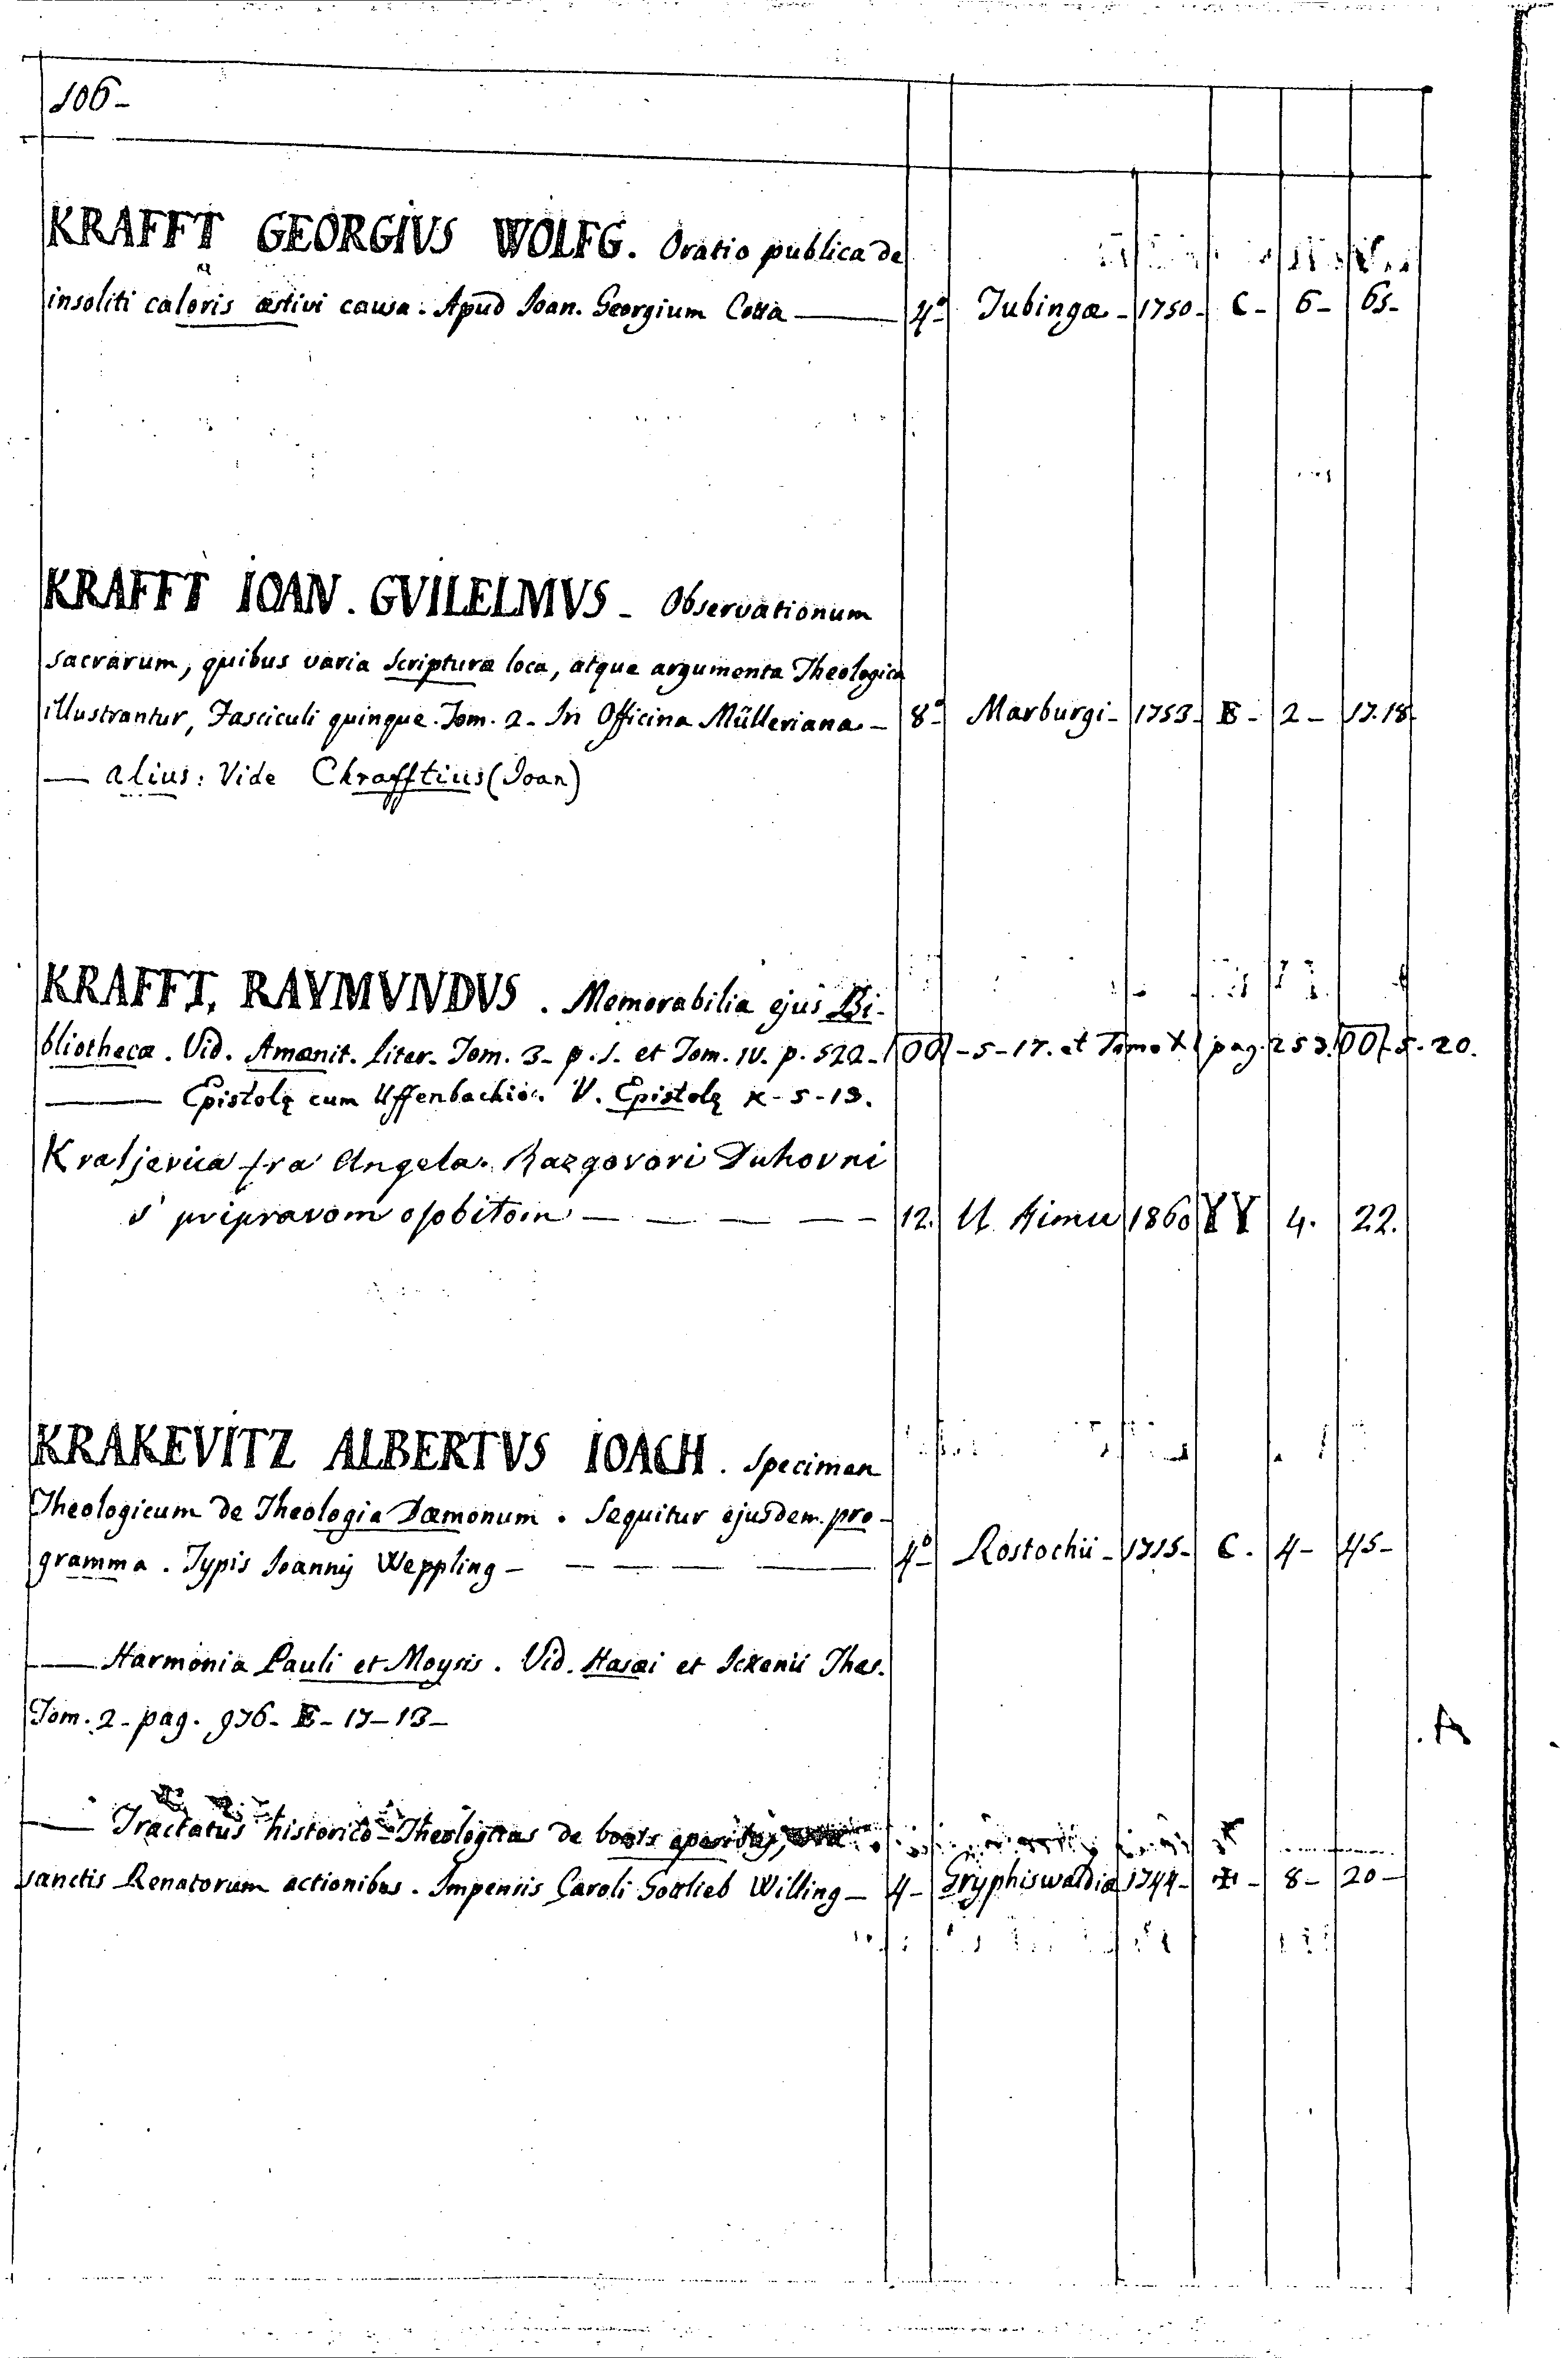 106-
KRAFFT GEORGIVS WOLFG. Oratio publica de
insoliti caloris æstivi causa. Apud Ioan. Georgium Cotta — 4º Tubingæ - 1750- C - 6- 65-
KRAFFT IOAN. GVILELMVS - Observationum
sacrarum, quibus varia Scripturæ loca, atque argumenta Theologica
illustrantur, Fasciculi quinque. Tom. 2- In Officina Mülleriana - 8º Marburgi- 1753- E - 2- 17.18
— alius: Vide Chrafftius (Ioan)
KRAFFT, RAYMVNDVS. Memorabilia ejus Bi-
bliothecæ. Vid. Amœnit. Liter. Tom. 3- p. 1. et Tom. IV. p. 522- OO - 5 - 17. et Tomo XI pag. 253. OO - 5. 20.
— Epistolę cum Uffenbachio. V. Epistolę X - 5 - 13.
Kraljevića fra Angela. Razgovori Duhovni
s' pripravom osobitom — — — — 12. U Rimu 1860 YY 4. 22.
KRAKEVITZ ALBERTVS IOACH. Specimen
Theologicum de Theologia Dæmonum. Sequitur ejusdem pro-
gramma. Typis Ioannij Weppling - — — — 4º Rostochii - 1715- C. 4- 45-
— Harmonia Pauli et Moysis. Vid. Hasæi et Ickenii Thes.
Tom. 2- pag. 976- E - 17- 13-
— Tractatus historico-Theologicus de
sanctis Renatorum actionibus. Impensis Caroli Gottlieb Willing - 4- Gryphiswaldiæ 1744- 8- 20-